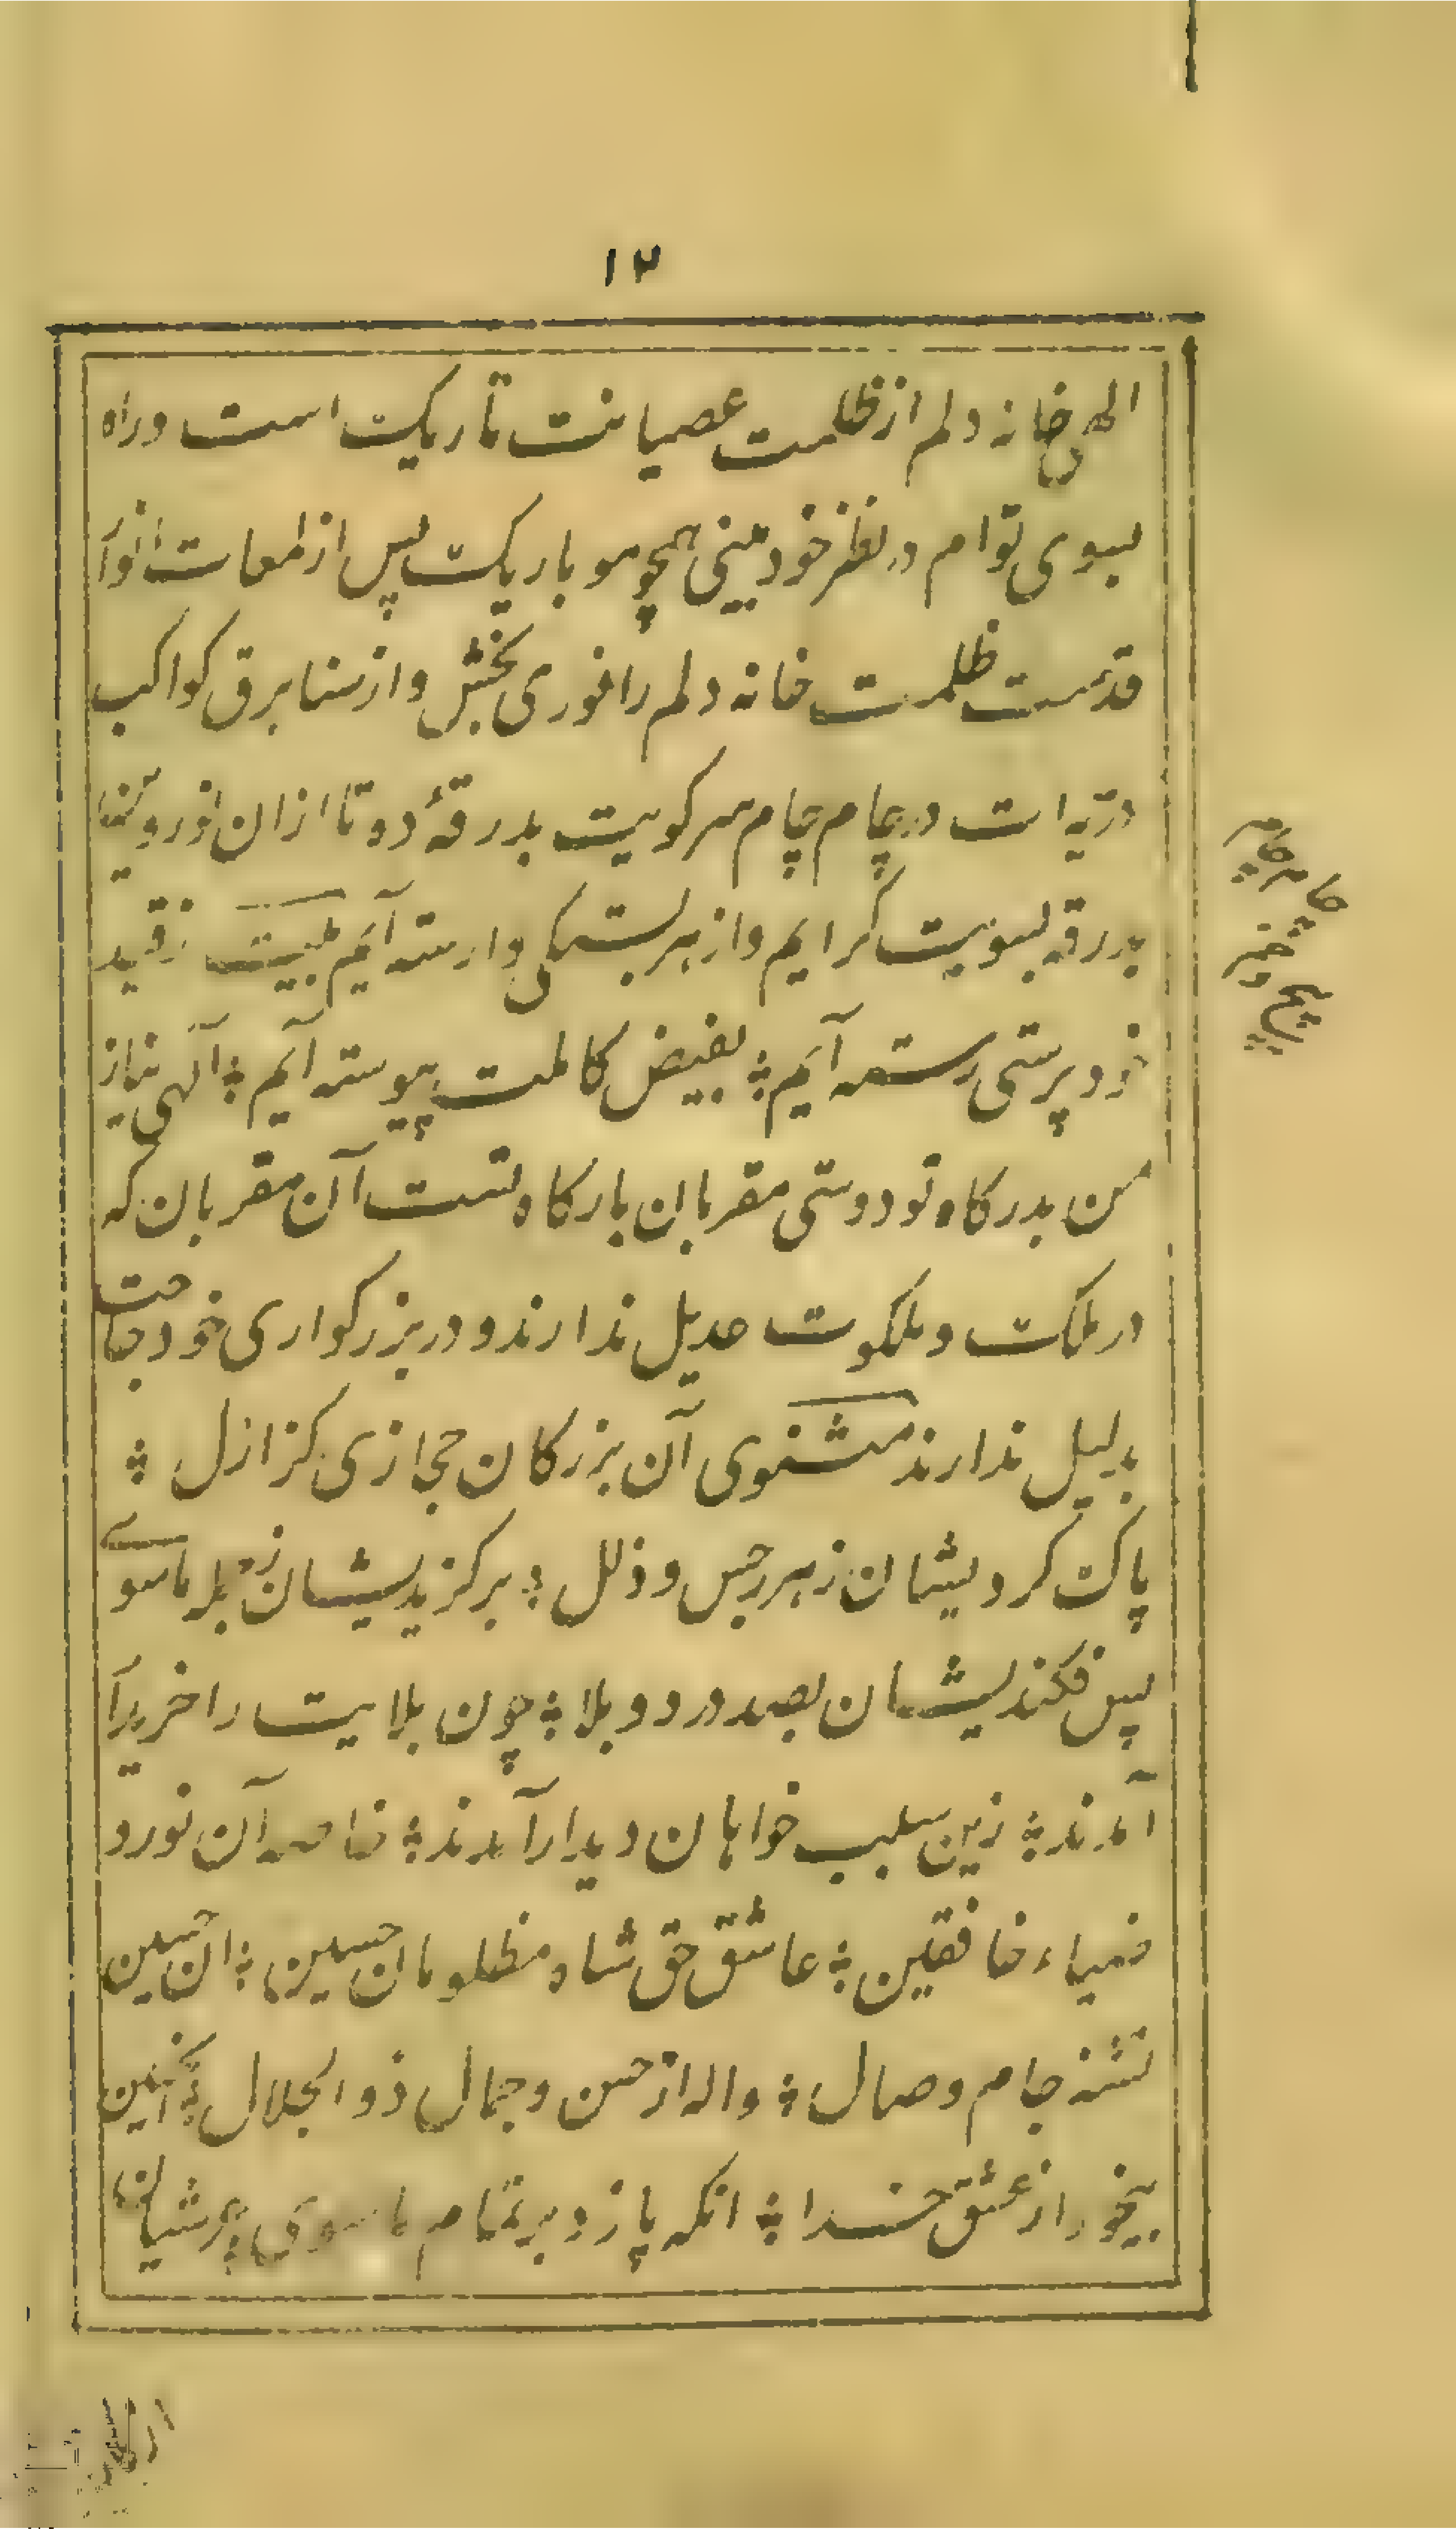 ۱۲
الهی خانه دلم از ظلمت عصیانت تاریک است و راه
بسوی توام در نظر خود بینی همچو مو باریک پس از لمعات انوار
قدست ظلمت خانه دلم را نوری بخش و از سنا برق کواکب
دریه ات در چام چام سر کویت بدرقهٔ ده تا ازان نور و بنداے
بدرقه بسویت کرایم و از هر بستکی وارسته آیم بیت ز قید
خود پرستی رسته آیم ؛ بفیض کاملت پیوسته آیم ؛ آلهی نیاز
من بدرکاه تو دوستی مقربان بارکاه تست آن مقربان که
در ملک و ملکوت عدیل ندارند و در بزرکواری خود حاجت
بدلیل ندارند مثنوی آن بزرکان حجازی کز ازل ؛
پاک کردیشان ز هر رجس و ذلل ؛ برکزیدیشان ز جمله ماسوے
پس فکندیشان بصد درد و بلا ؛ چون بلایت را خریدار
آمدند ؛ زین سبب خواهان دیدار آمدند ؛ خاصه آن نور و
ضیاء خافقین ؛ عاشق حق شاه مظلومان حسین ؛ ان حسین
تشنه جام وصال ؛ واله از حسن و جمال ذوالجلال ؛ آنچنین
بیخود از عشق خدا ؛ انکه پا زد بر تمام ماسوی ؛
چام چام
پیچ و خم